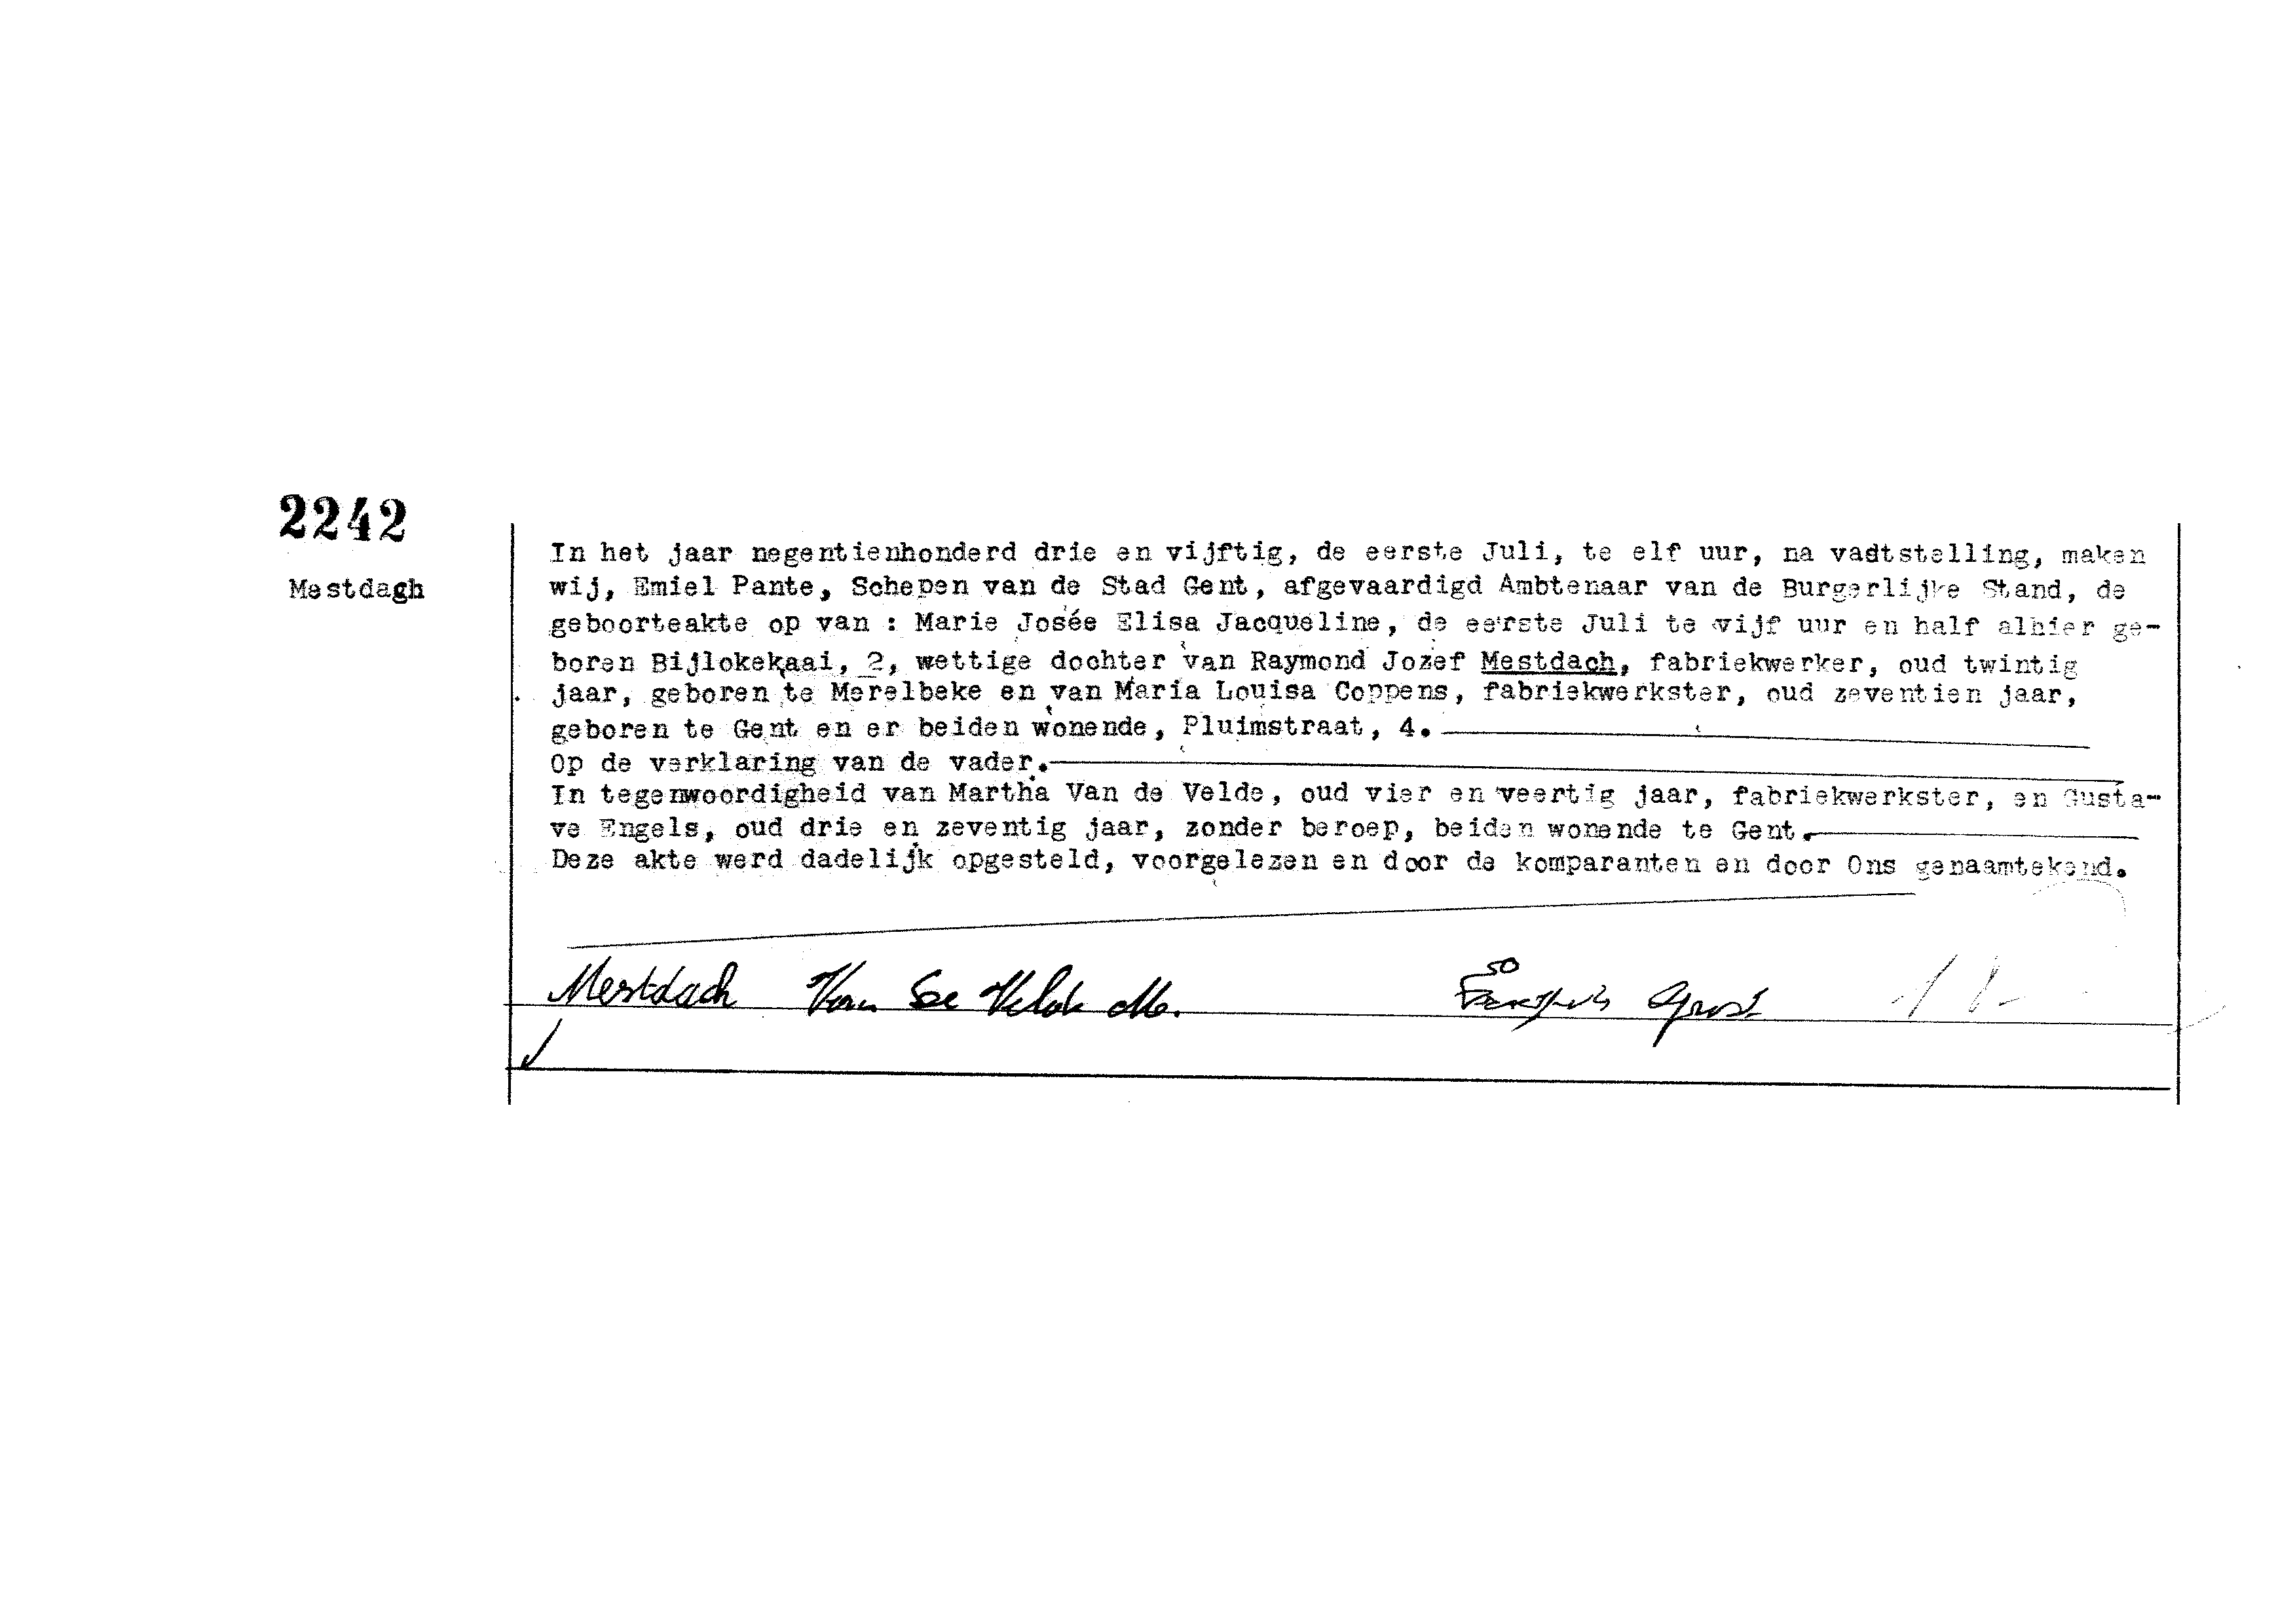 2242
Mestdagh
In het jaar negentienhonderd drie en vijftig, de eerste Juli, te elf uur, na vadtstelling, maken
wij, Emiel Pante, Schepen van de Stad Gent, afgevaardigd Ambtenaar van de Burgerlijke Stand, de
geboorteakte op van : Marie Josée Elisa Jacqueline, de eerste Juli te vijf uur en half alhier ge-
boren Bijlokekaai, 2, wettige dochter van Raymond Jozef Mestdach, fabriekwerker, oud twintig
jaar, geboren te Merelbeke en van Maria Louisa Coppens, fabriekwerkster, oud zeventien jaar,
geboren te Gent en er beiden wonende, Pluimstraat, 4.
Op de verklaring van de vader.
In tegenwoordigheid van Martha Van de Velde, oud vier en veertig jaar, fabriekwerkster, en Gusta-
ve Engels, oud drie en zeventig jaar, zonder beroep, beiden wonende te Gent.
Deze akte werd dadelijk opgesteld, voorgelezen en door de komparanten en door Ons genaamtekend.
Mestdach Van De Velde M.